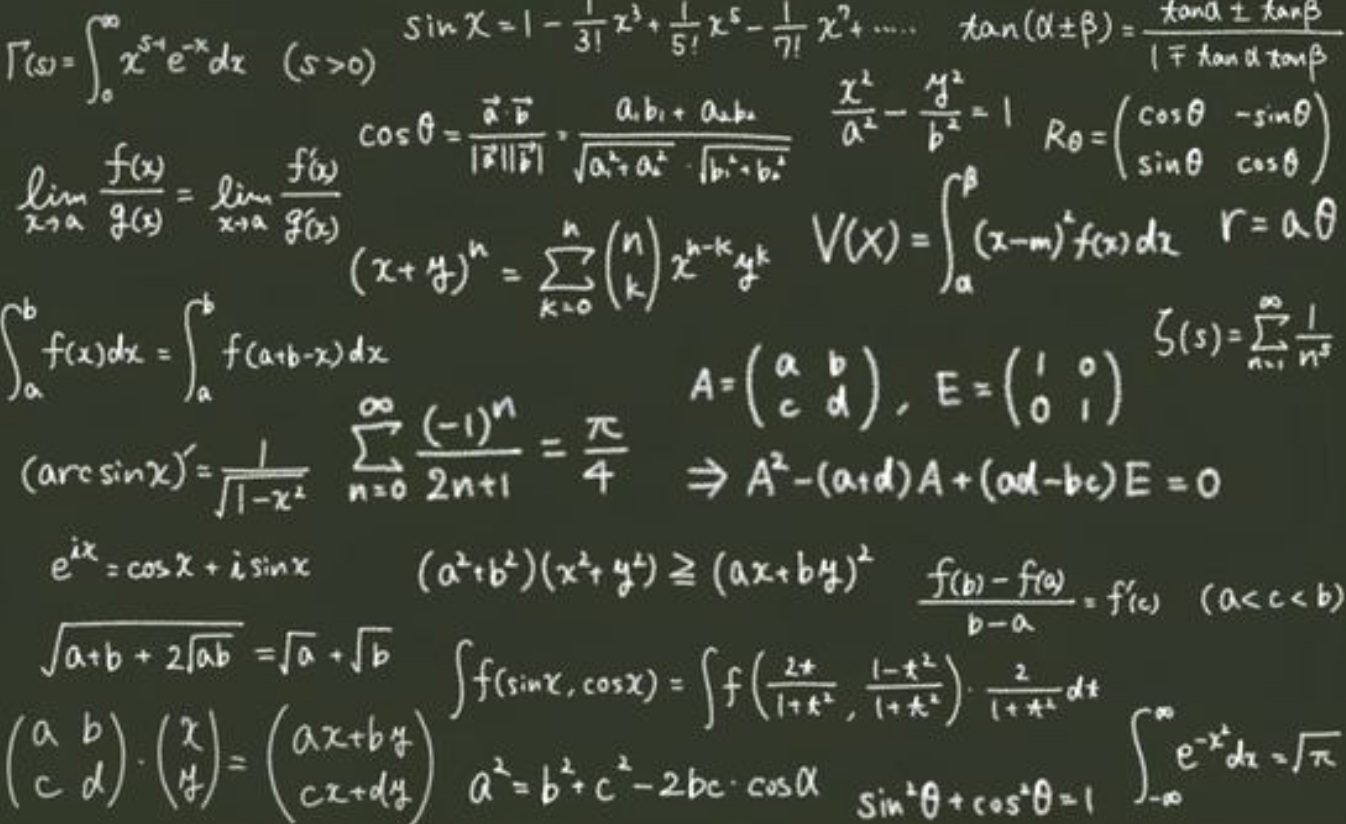 Γ(s) = ∫₀^∞ x^{s-1} e^{-x} dx (s > 0)
sin x = 1 - 1/3! x³ + 1/5! x⁵ - 1/7! x⁷ + .....
tan(α ± β) = (tan α ± tan β)/(1 ∓ tan α tan β)
cos θ = (a⃗ · b⃗)/(|a⃗||b⃗|) = (a₁b₁ + a₂b₂)/(√(a₁² + a₂²) · √(b₁² + b₂²))
x²/a² - y²/b² = 1
R_θ = (cos θ  -sin θ ; sin θ  cos θ)
lim_{x→a} f(x)/g(x) = lim_{x→a} f'(x)/g'(x)
(x + y)^n = Σ_{k=0}^{n} (n ; k) x^{n-k} y^k
V(X) = ∫_α^β (x - m)² f(x) dx
r = aθ
∫_a^b f(x) dx = ∫_a^b f(a+b-x) dx
ζ(s) = Σ_{n=1}^∞ 1/n^s
A = (a  b ; c  d), E = (1  0 ; 0  1)
(arc sin x)' = 1/√(1 - x²)
Σ_{n=0}^∞ (-1)^n/(2n+1) = π/4
⇒ A² - (a+d)A + (ad-bc)E = 0
e^{ix} = cos x + i sin x
(a² + b²)(x² + y²) ≧ (ax + by)²
(f(b) - f(a))/(b - a) = f'(c) (a < c < b)
√(a+b + 2√ab) = √a + √b
∫ f(sin x, cos x) = ∫ f(2t/(1+t²), (1-t²)/(1+t²)) · 2/(1+t²) dt
(a  b ; c  d) · (x ; y) = (ax+by ; cx+dy)
a² = b² + c² - 2bc · cos α
sin²θ + cos²θ = 1
∫_{-∞}^∞ e^{-x²} dx = √π